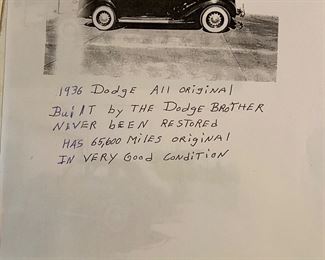 1936 Dodge All original
Built by THE Dodge BROTHER
NEVER been RESTORED
HAS 65,600 Miles original
IN VERY Good CONDITION